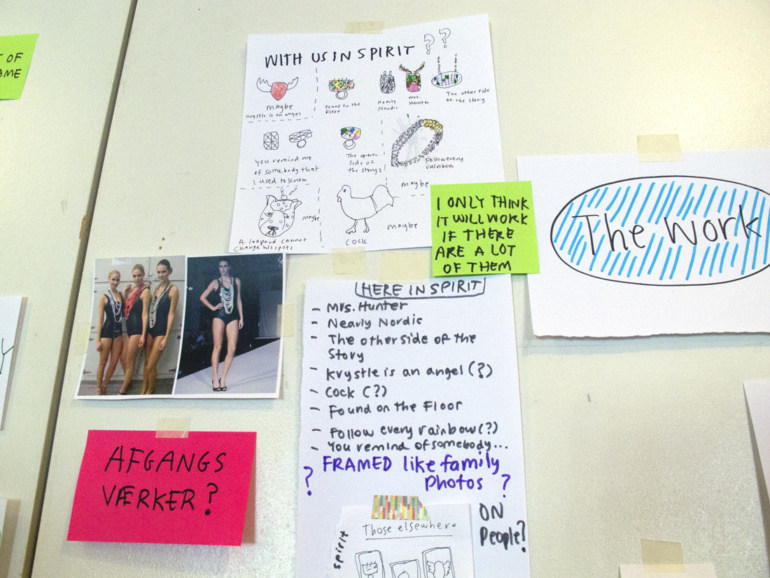 T OF
AME
WITH US IN SPIRIT ??
maybe
Krystle is an angel
Found on the
Floor
Nearly
Nordic
Mrs.
Hunter
The other side
of the story
You remind me
of somebody that
I used to know
The other
side of
the story
Follow every
rainbow
maybe
maybe
A leopard cannot
change his spots
cock
maybe
I ONLY THINK
IT WILL WORK
IF THERE
ARE A LOT
OF THEM
The work
HERE IN SPIRIT
- Mrs. Hunter
- Nearly Nordic
- The other side of the
Story
- Krystle is an angel (?)
- Cock (?)
- Found on the Floor
- Follow every rainbow (?)
- You remind of somebody...
? FRAMED like family
Photos ?
ON
People?
AFGANGS
VÆRKER?
Those elsewhere
spirit